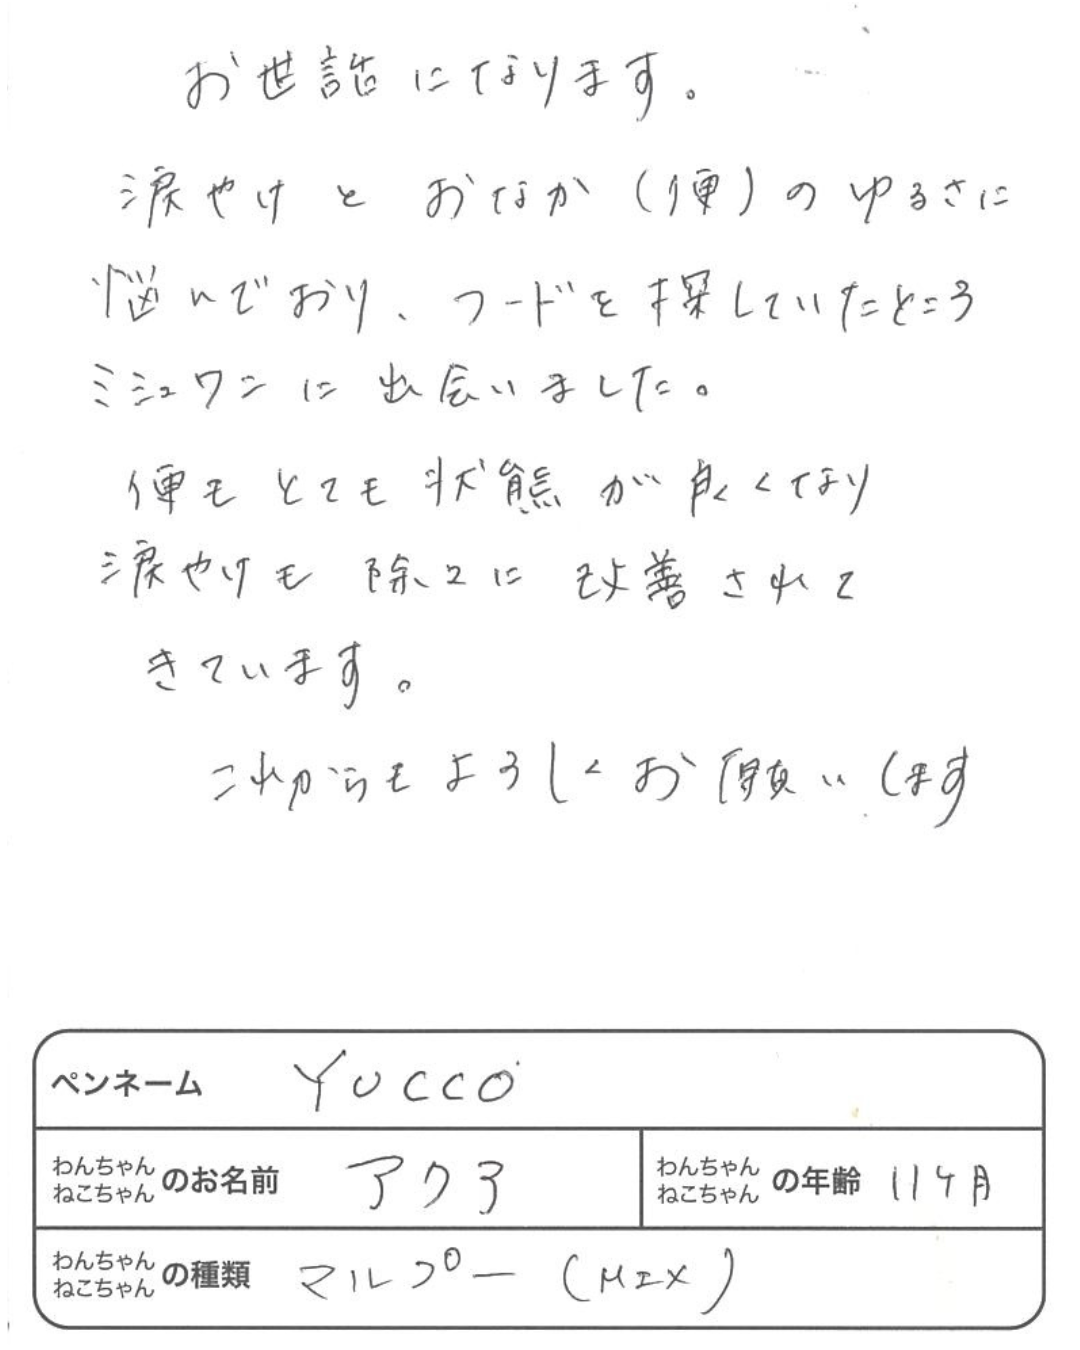 お世話になります。
涙やけと おなか(便)のゆるさに
悩んでおり、フードを探していたところ
ミシュワンに出会いました。
便もとても状態が良くなり
涙やけも除々に改善されて
きています。
これからもよろしくお願いします
ペンネーム YUCCO
わんちゃんねこちゃんのお名前 アクア わんちゃんねこちゃんの年齢 11ケ月
わんちゃんねこちゃんの種類 マルプー(MIX)